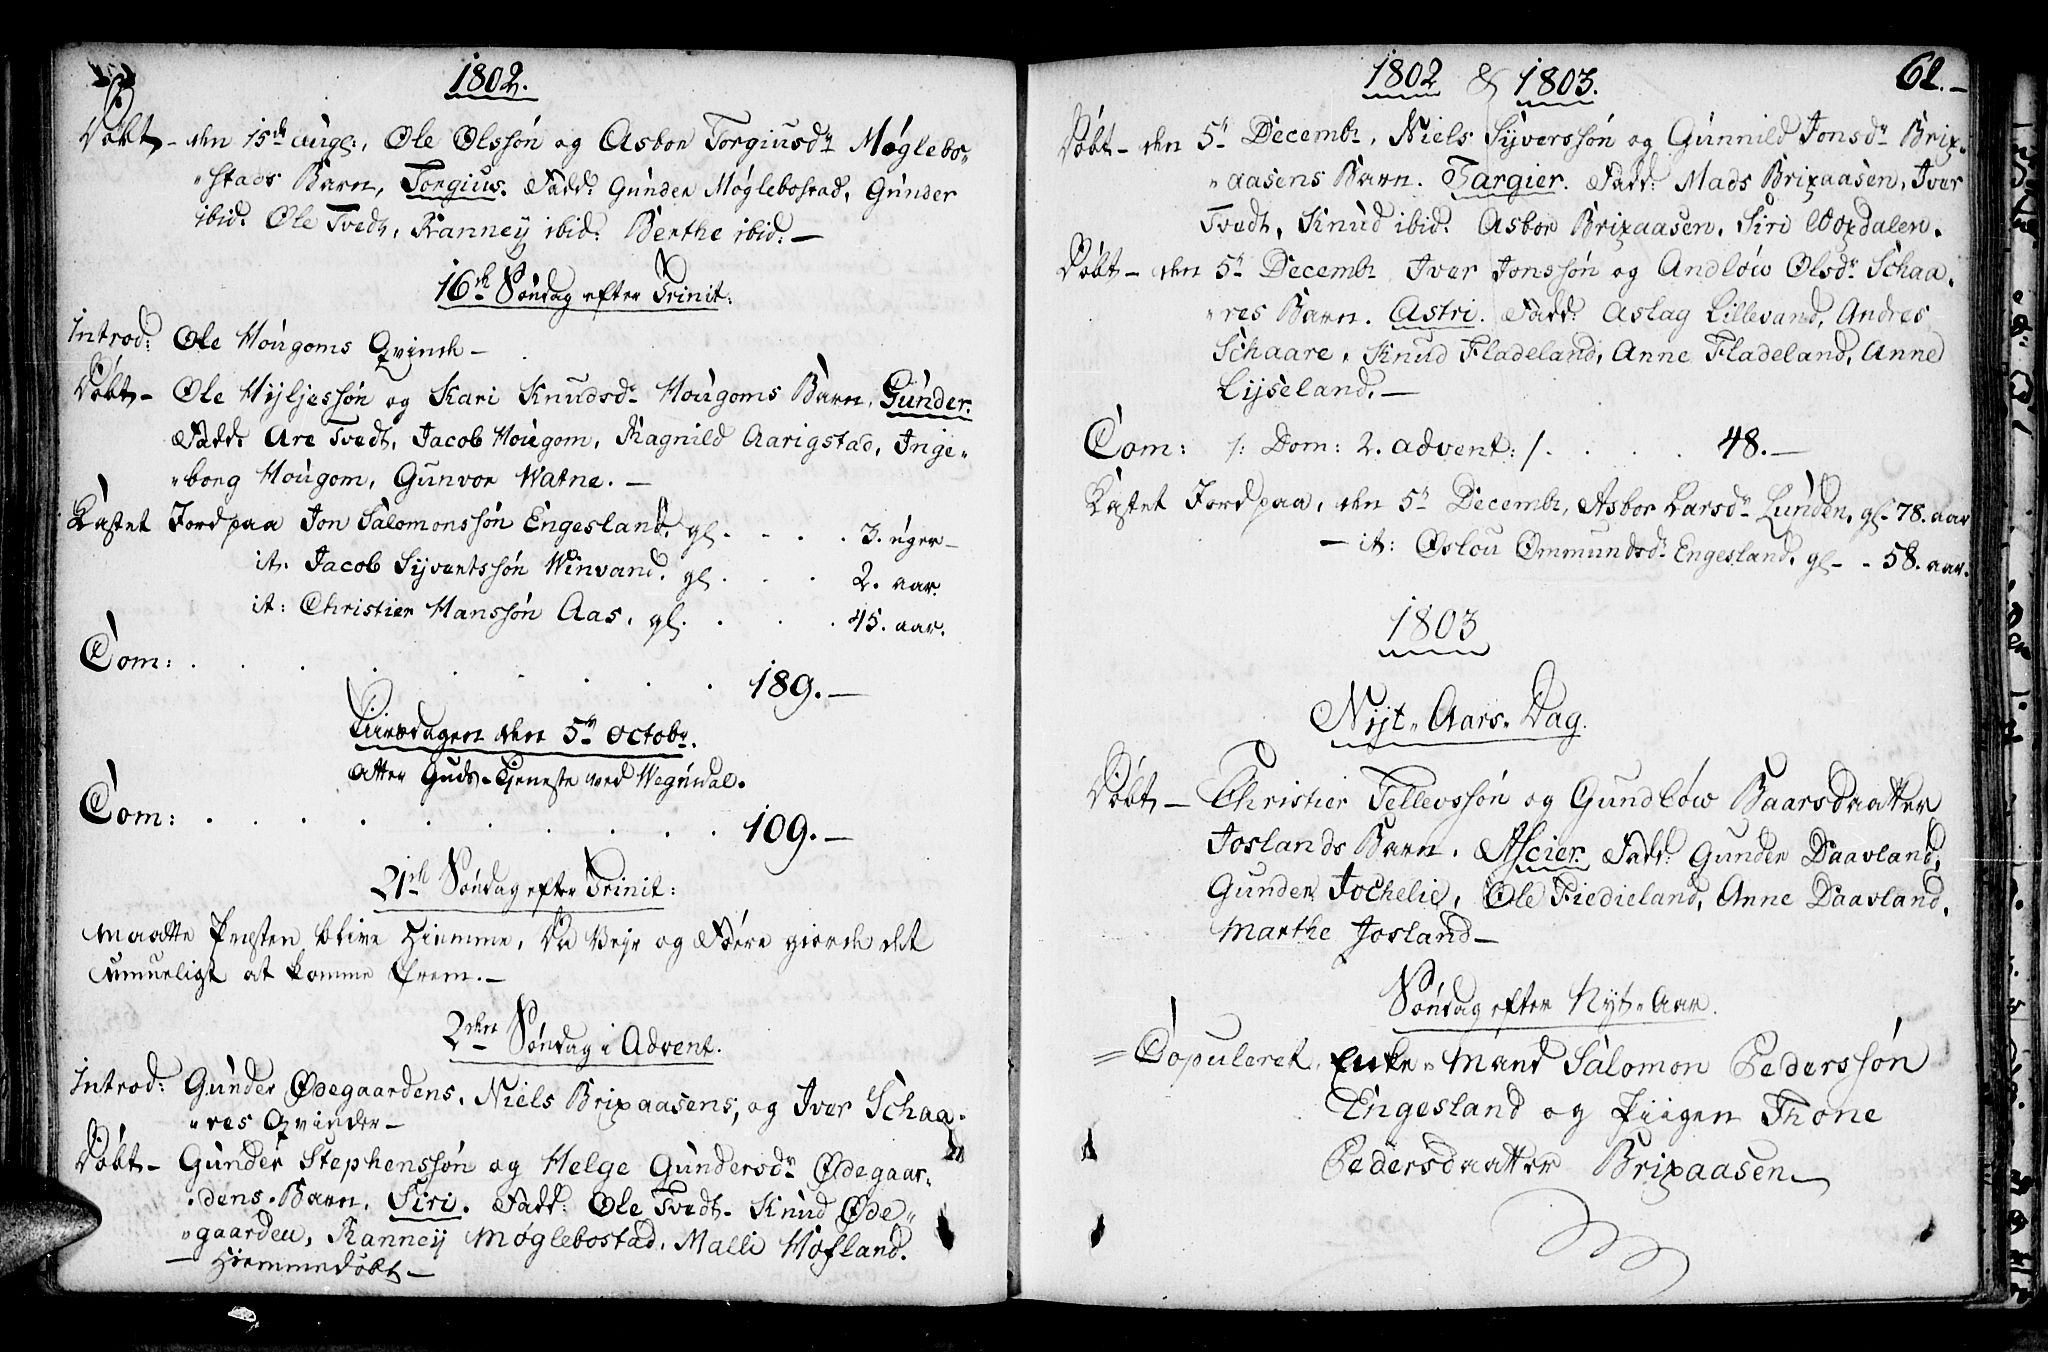 1802.
Døbt – den 15de Aug:, Ole Olssøn og Asbor Torgiusdr Møglebo-
stads Barn, Torgius. Fadd: Gunder Møglebostad, Gunder
ibid: Ole Tvedt, Ranney ibid: Berthe ibid: –
16de Søndag efter Trinit:
Introd: Ole Hougoms Qvinde –
Døbt – Ole Hyljessøn og Kari Knudsdr Hougoms Barn, Gunder.
Fadd: Are Tvedt, Jacob Hougom, Ragnild Aarigstad, Inge-
borg Hougom, Gunvor Watne. –
Kastet Jord paa Jon Salomonssøn Engesland, gl. . . . 3. uger –
it: Jacob Syvertssøn Winvand, gl. . . . 2. aar.
it: Christier Hanssøn Aas, gl. . . . 45. aar.
Com: . . . . . . . . 189. –
Tiirsdagen den 5te Octobr.
Atter Guds-Tjeneste ved Wegusdal.
Com: . . . . . . . . 109. –
21de Søndag efter Trinit:
Maatte Præsten blive Hiemme, da Veyr og Føre giorde det
umueligt at komme frem. –
2den Søndag i Advent.
Introd: Gunder Ødegaardens, Niels Brixaasens, og Iver Schaa-
res Qvinder –
Døbt – Gunder Stephenssøn og Helge Gundersdr Ødegaar-
dens Barn, Siri. Fadd: Ole Tvedt, Knud Øde-
gaarden, Ranney Møglebostad, Malli Hofland.
– Hiemmedøbt –
1802 & 1803. 62. –
Døbt – den 5te Decembr, Niels Syverssøn og Gunnild Jonsdr Brix-
aasens Barn. Targier. Fadd: Mads Brixaasen, Iver
Tvedt, Knud ibid: Asbor Brixaasen, Siri Woxdalen.
Døbt – den 5te Decembr Iver Jonssøn og Andløw Olsdr Schaa-
res Barn. Astri. Fadd: Aslag Lillevand, Andres
Schaare, Knud Fladeland, Anne Fladeland, Anne
Lyseland. –
Com: /: Dom: 2. Advent :/ . . . . 48. –
Kastet Jord paa, den 5te Decembr, Asbor Larsdr Lunden, gl. 78. aar
– it: Oslou Ommundsdr Engesland, gl. – 58. aar.
1803
Nyt-Aars-Dag.
Døbt – Christier Tellevssøn og Gundløw Baarsdaatter
Joslands Barn. Ascier. Fadd: Gunder Daavland,
Gunder Jochelie, Ole Fiedieland, Anne Daavland,
Marthe Josland –
Søndag efter Nyt-Aar.
= Copuleret, Enke-Mand Salomon Pederssøn
Engesland og Piigen Thone
Pedersdaatter Brixaasen –